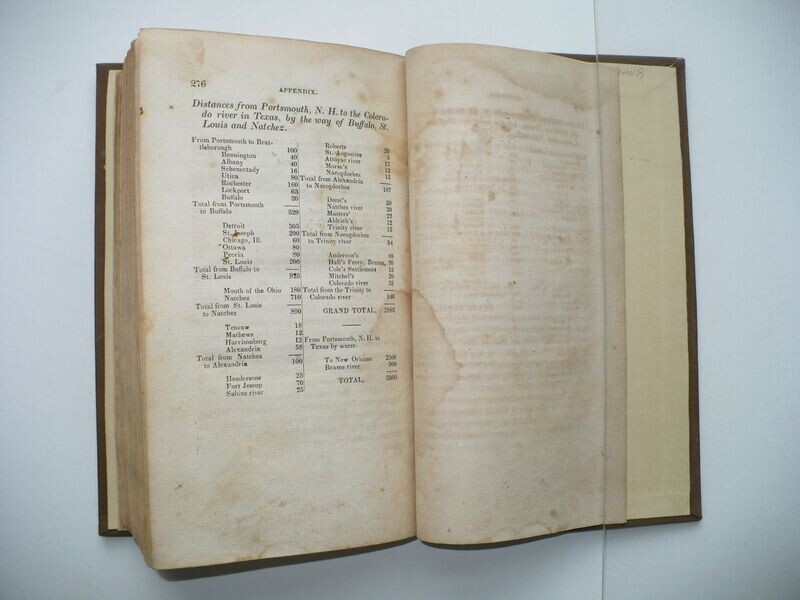 276
APPENDIX.
Distances from Portsmouth, N. H. to the Colora-
do river in Texas, by the way of Buffalo, St.
Louis and Natchez.
From Portsmouth to Brat-
tleborough 100
Bennington 40
Albany 40
Schenectady 16
Utica 80
Rochester 160
Lockport 63
Buffalo 30
Total from Portsmouth
to Buffalo 529
Detroit 305
St. Joseph 200
Chicago, Ill. 60
Ottawa 80
Peoria 80
St. Louis 200
Total from Buffalo to
St. Louis 925
Mouth of the Ohio 180
Natchez 710
Total from St. Louis
to Natchez 890
Tensaw 18
Mathews 12
Harrisonburg 12
Alexandria 58
Total from Natchez
to Alexandria 100
Hendersons 25
Fort Jessup 70
Sabine river 25
Roberts 20
St. Augustine 5
Attoyac river 17
Morse's 12
Nacogdoches 13
Total from Alexandria
to Nacogdoches 187
Durst's 20
Natches river 20
Masters' 27
Aldrich's 12
Trinity river 15
Total from Nacogdoches
to Trinity river 94
Anderson's 40
Hall's Ferry, Brazos, 30
Cole's Settlement 15
Mitchel's 20
Colorado river 35
Total from the Trinity to
Colorado river 140
GRAND TOTAL, 2865
From Portsmouth, N. H. to
Texas by water.
To New Orleans 2500
Brasos river 500
TOTAL, 3000
NWB